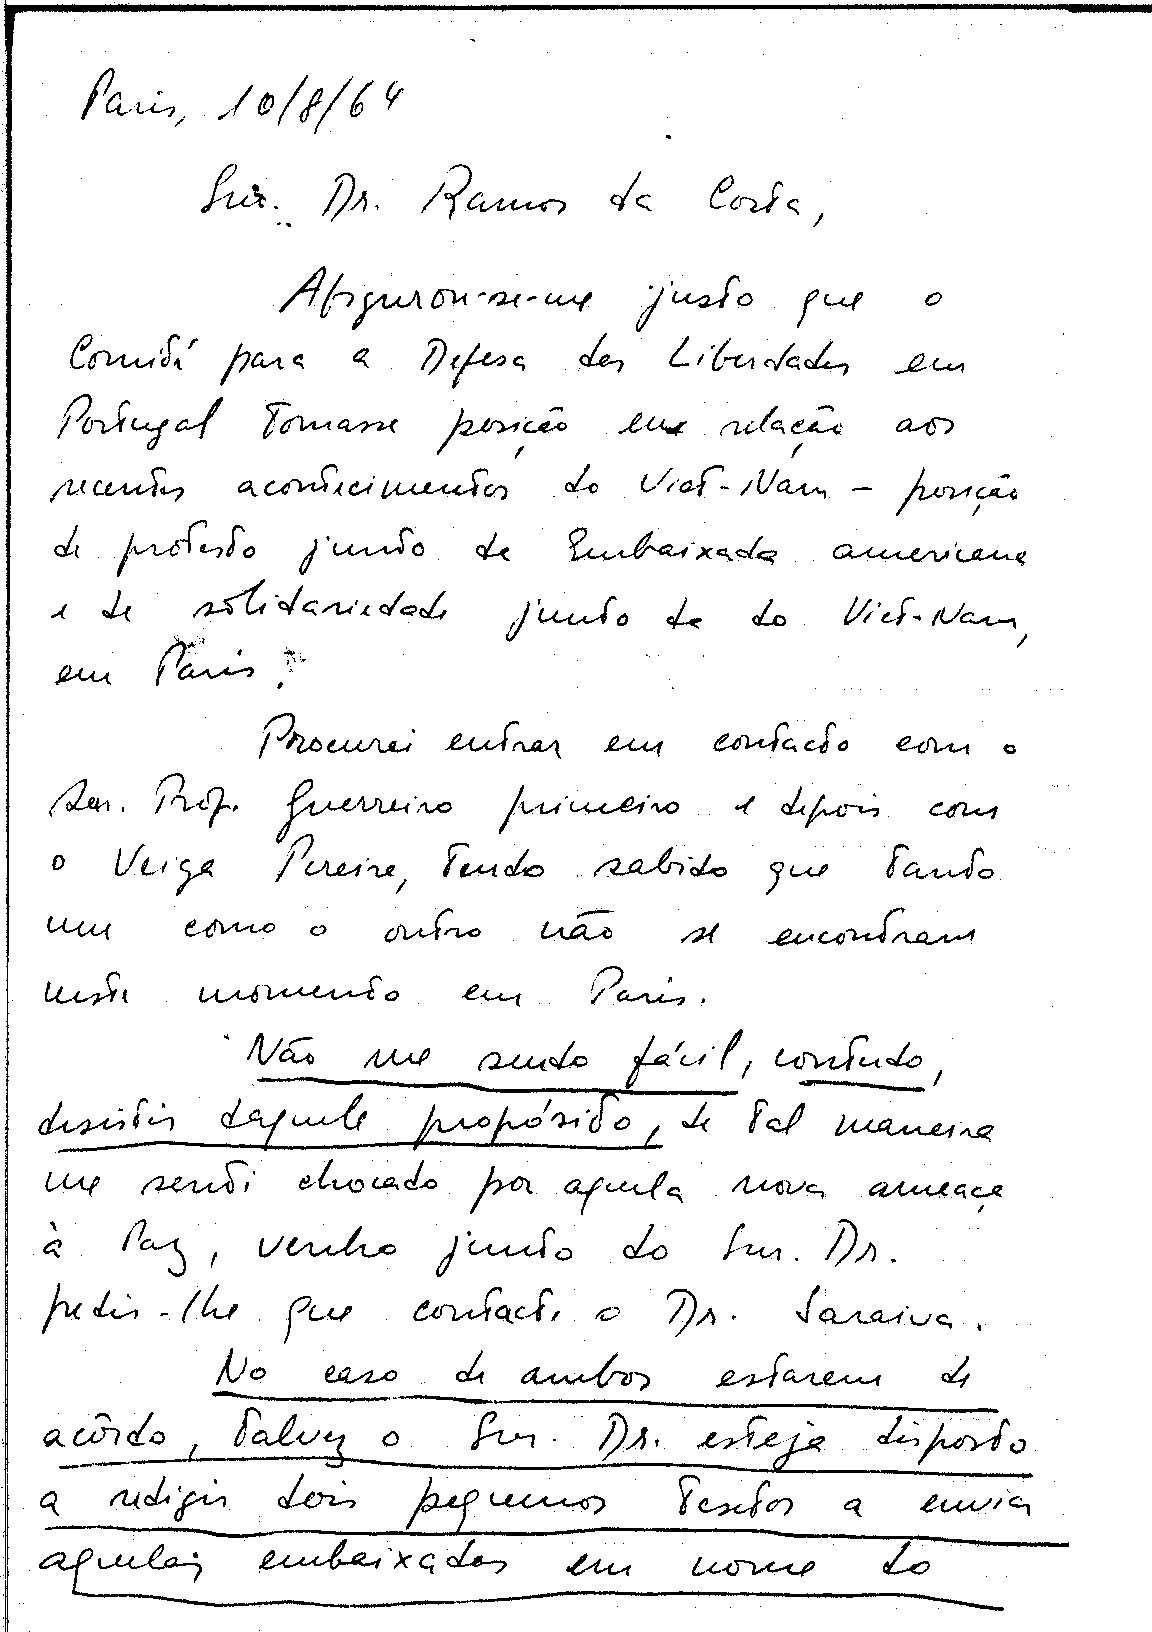 Paris, 10/8/64
Snr. Dr. Ramos da Costa,
Afigurou-se-me justo que o
Comité para a Defesa das Liberdades em
Portugal tomasse posição em relação aos
recentes acontecimentos do Viet-Nam - posição
de protesto junto da Embaixada americana
e de solidariedade junto da do Viet-Nam,
em Paris.
Procurei entrar em contacto com o
Snr. Prof. Guerreiro primeiro e depois com
o Veiga Pereira, tendo sabido que tanto
um como o outro não se encontram
neste momento em Paris.
Não me sendo fácil, contudo,
desistir daquele propósito, de tal maneira
me senti chocado por aquela nova ameaça
à Paz, venho junto do Snr. Dr.
pedir-lhe que contacte o Dr. Saraiva.
No caso de ambos estarem de
acôrdo, talvez o Snr. Dr. esteja disposto
a redigir dois pequenos textos a enviar
aquelas embaixadas em nome do